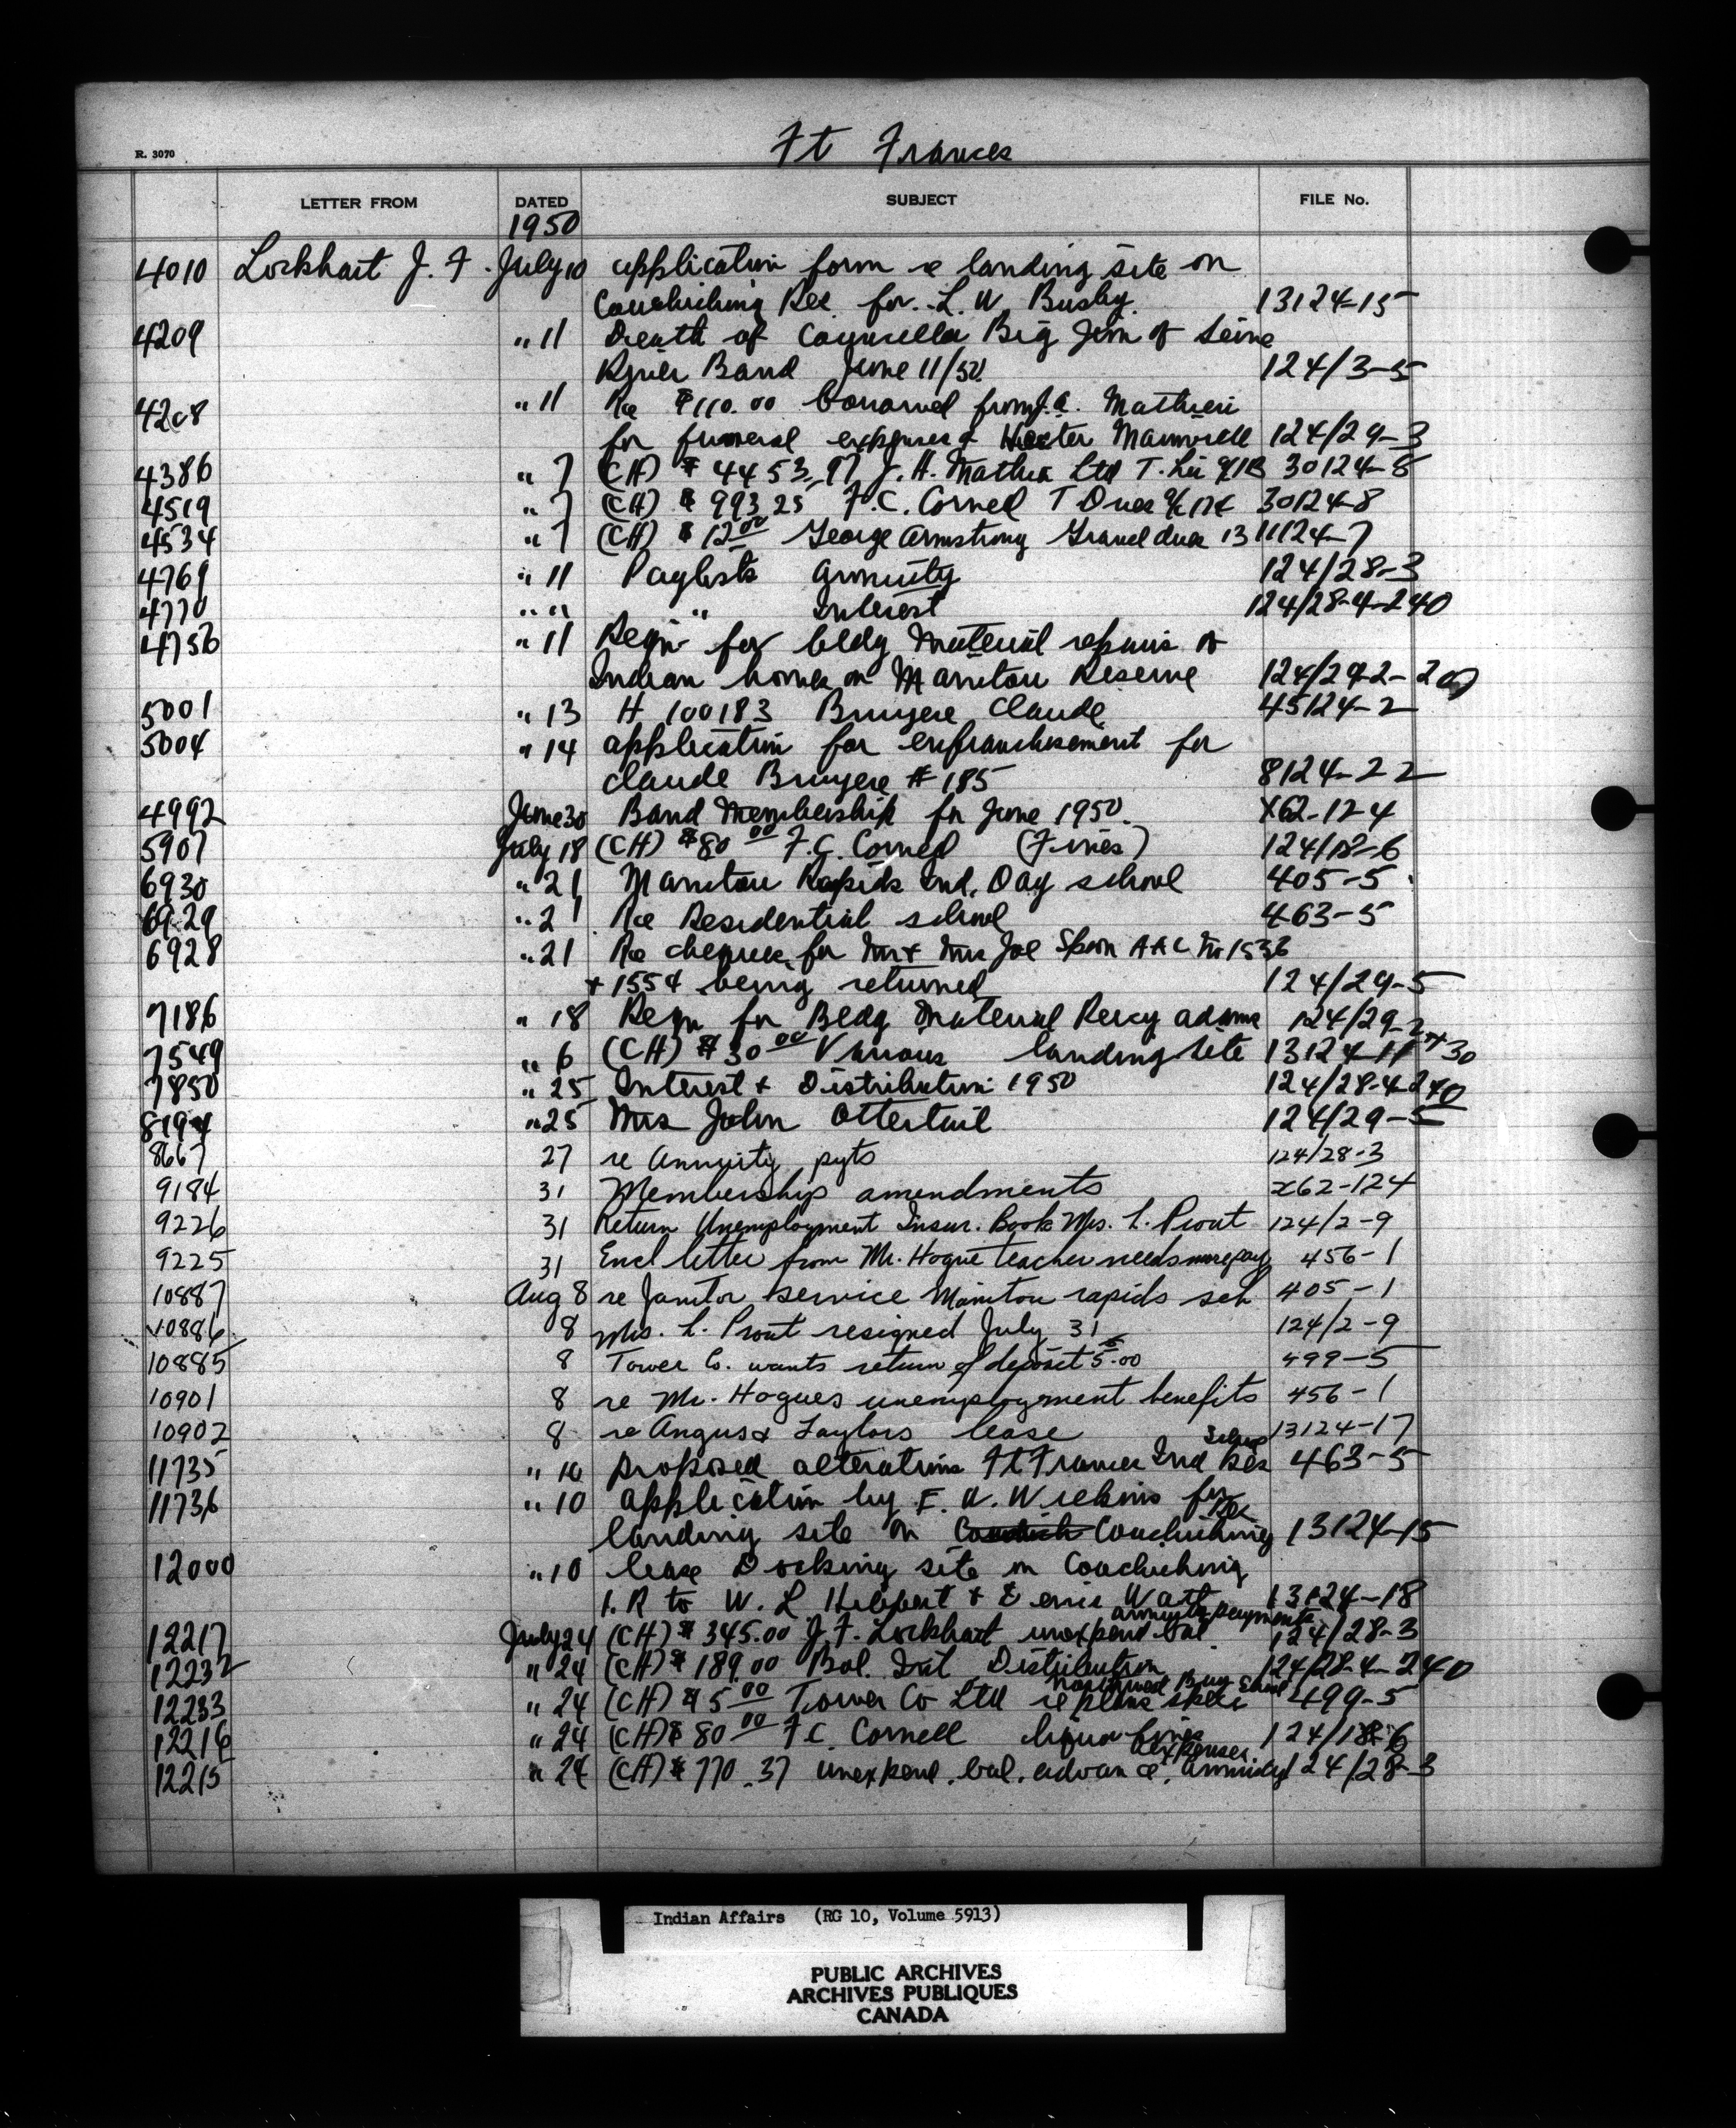 R. 3070
Ft Frances
LETTER FROM DATED SUBJECT FILE No.
1950
4010 Lockhart J. F. July 10 application form re landing site on
Couchiching Res. for L. W. Busby. 13124-15
4209 " 11 Death of Councellor Big Jim of Seine
River Band June 11/50 124/3-5
4208 " 11 Re $110.00 borrowed from J.A. Mathieu
for funeral expenses 124/29-3
4386 " 7 (CH) $4453.97 J. A. Mathieu Ltd T. 30124-8
4519 " 7 (CH) $993.25 F. C. Cornell T Dues 30124-8
4534 " 7 (CH) $12.00 George Armstrong Gravel dues 1311124-7
4769 " 11 Paylists Annuity 124/28-3
4770 " " " Interest 124/28-4-240
4756 " 11 Reqn for bldg material repairs of
Indian homes on Manitou Reserve 124/29-2-
5001 " 13 H 100183 Bruyere Claude 45124-2
5004 " 14 application for enfranchisement for
Claude Bruyere # 185 8124-22
4992 June 30 Band Membership for June 1950. X62-124
5907 July 18 (CH) $80.00 F. C. Cornell (Fines) 124/18-6
6930 " 21 Manitou Rapids Ind. Day school 405-5
6929 " 21 Re Residential school 463-5
6928 " 21 Re cheques for Mr & Mrs Joe Spoon AAC No 1536
+ 1554 being returned 124/29-5
7186 " 18 Reqn for Bldg Material Percy adams 124/29-2
7549 " 6 (CH) $30.00 Various landing site 13124-11 + 30
7850 " 25 Interest & Distribution 1950 124/28-4-240
8194 " 25 Mrs John Ottertail 124/29-5
8667 27 re Annuity pyts 124/28-3
9184 31 Membership amendments x62-124
9226 31 Return Unemployment Insur. Book Mrs. L. Prout 124/2-9
9225 31 Encl letter from Mr. Hogue teacher needs more pay 456-1
10887 Aug 8 re Janitor service Manitou rapids sch 405-1
10886 8 Mrs. L. Prout resigned July 31 124/2-9
10885 8 Tower Co. wants return of deposit 5.00 499-5
10901 8 re Mr. Hogues unemployment benefits 456-1
10902 8 re Angus & Taylors lease 13124-17
11735 " 10 proposed alterations Ft Frances Ind Res School 463-5
11736 " 10 application by F. W. Wickins for
landing site on Couchiching Res 13124-15
12000 " 10 lease Docking site on Couchiching
I. R to W. L Hibbert & Ernie Watt 13124-18
12217 July 24 (CH) $345.00 J. F. Lockhart unexpend bal. annuity payments 124/28-3
12232 " 24 (CH) $189.00 Bal. Int Distribution 124/28-4-240
12233 " 24 (CH) $5.00 Tower Co Ltd re plans spec 499-5
12216 " 24 (CH) $80.00 F C. Cornell liquor fines 124/18-6
12215 " 24 (CH) $770.37 unexpend. bal. advance. annuity expenses. 124/28-3
Indian Affairs (RG 10, Volume 5913)
PUBLIC ARCHIVES
ARCHIVES PUBLIQUES
CANADA